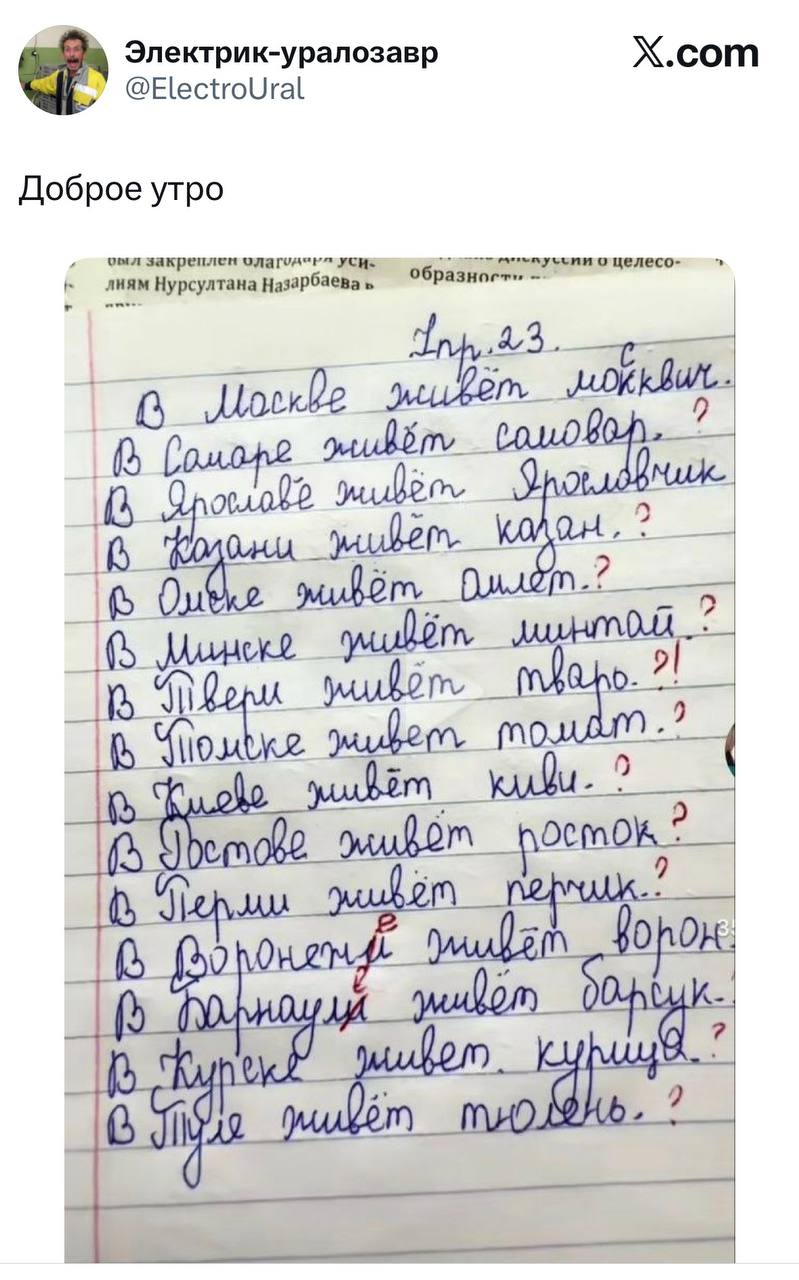 Электрик-уралозавр
X.com
@ElectroUral
Доброе утро
был закреплен благодаря уси-
лиям Нурсултана Назарбаева в
дискуссии о целесо-
образности
Упр. 23.
с
В Москве живёт мокквич.
В Самаре живёт самовар. ?
В Ярославе живёт Ярославчик
В Казани живёт казан. ?
В Омске живёт Омлет. ?
В Минске живёт минтай. ?
В Твери живёт тварь. ?!
В Томске живет томат. ?
В Киеве живёт киви. ?
В Ростове живёт росток ?
В Перми живёт перчик. ?
е
В Воронежи живёт ворон
е
В Барнаули живёт барсук.
В Курске живет. курица. ?
В Туле живёт тюлень. ?